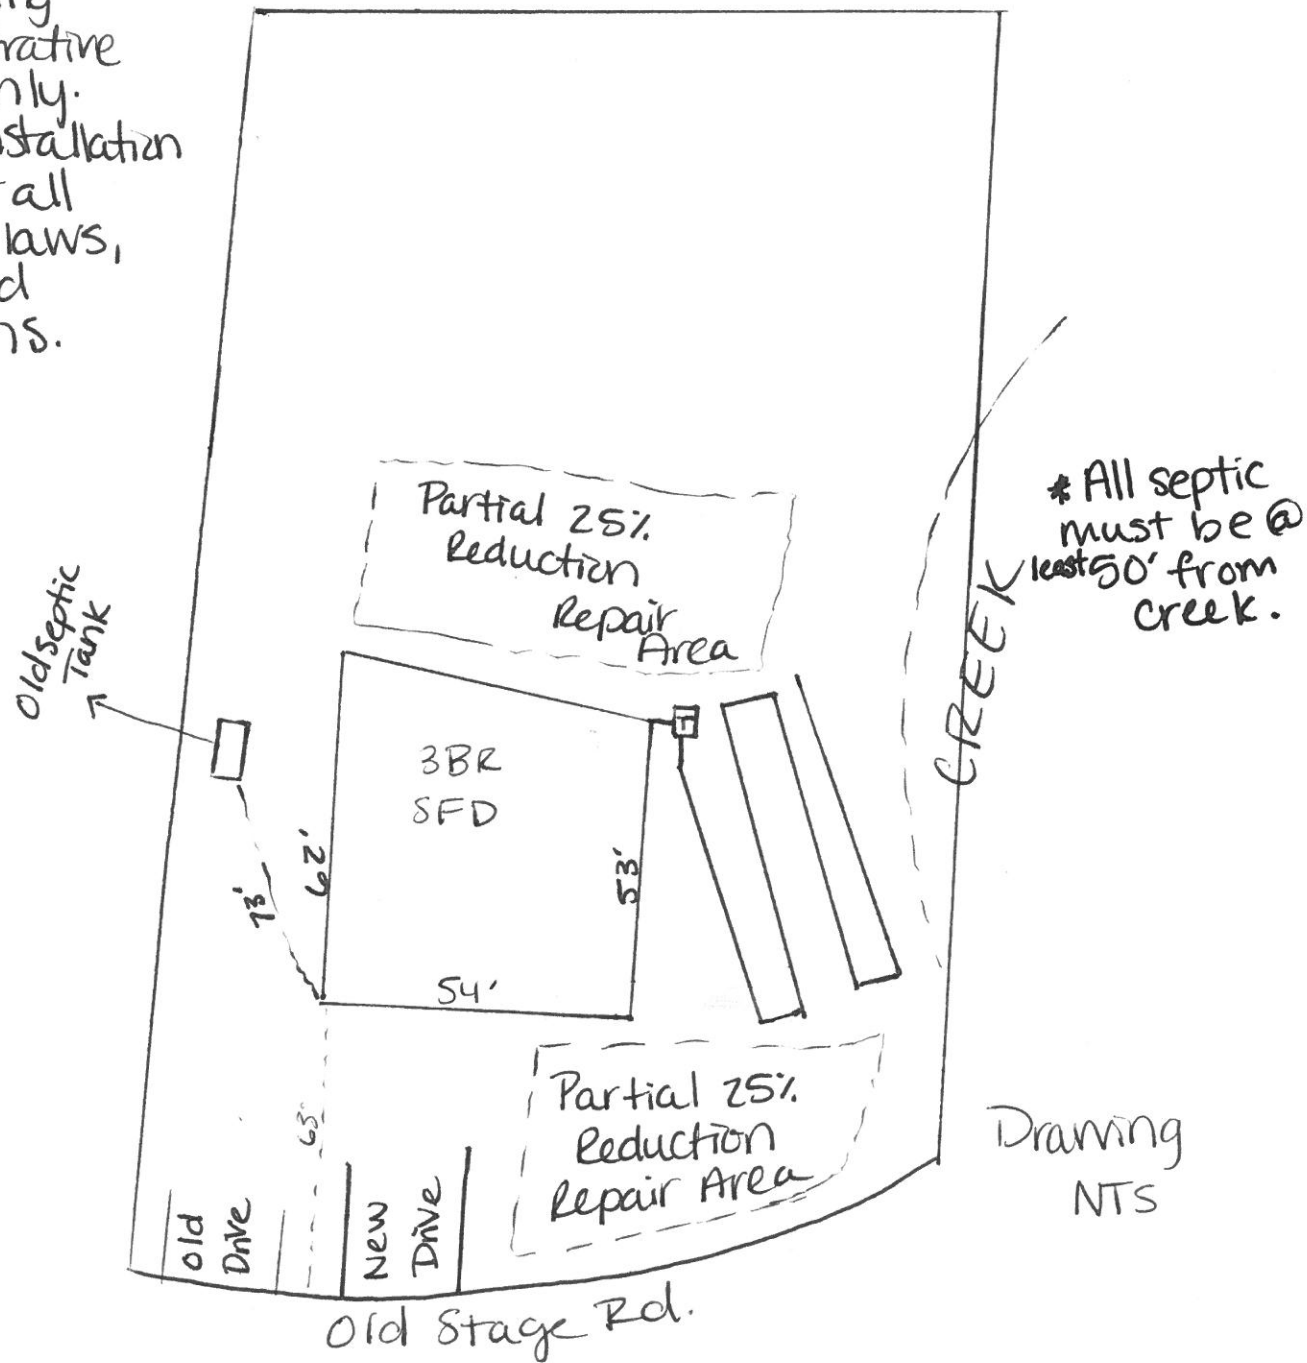 rative
nly.
stallation
all
laws,
d
ns.
Partial 25%
Reduction
Repair
Area
* All septic
must be @
least 50' from
creek.
CREEK
Old septic
Tank
T
3BR
SFD
62'
53'
73'
54'
63'
Partial 25%
Reduction
Repair Area
Drawing
NTS
Old
Drive
New
Drive
Old Stage Rd.